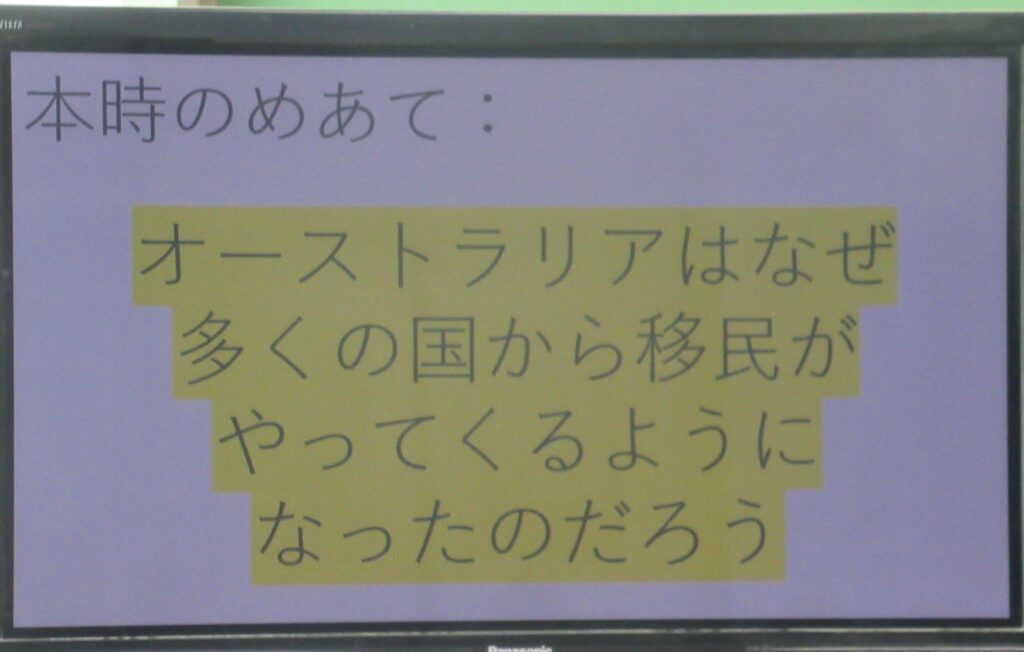 VIERA
本時のめあて：
オーストラリアはなぜ
多くの国から移民が
やってくるように
なったのだろう
Panasonic